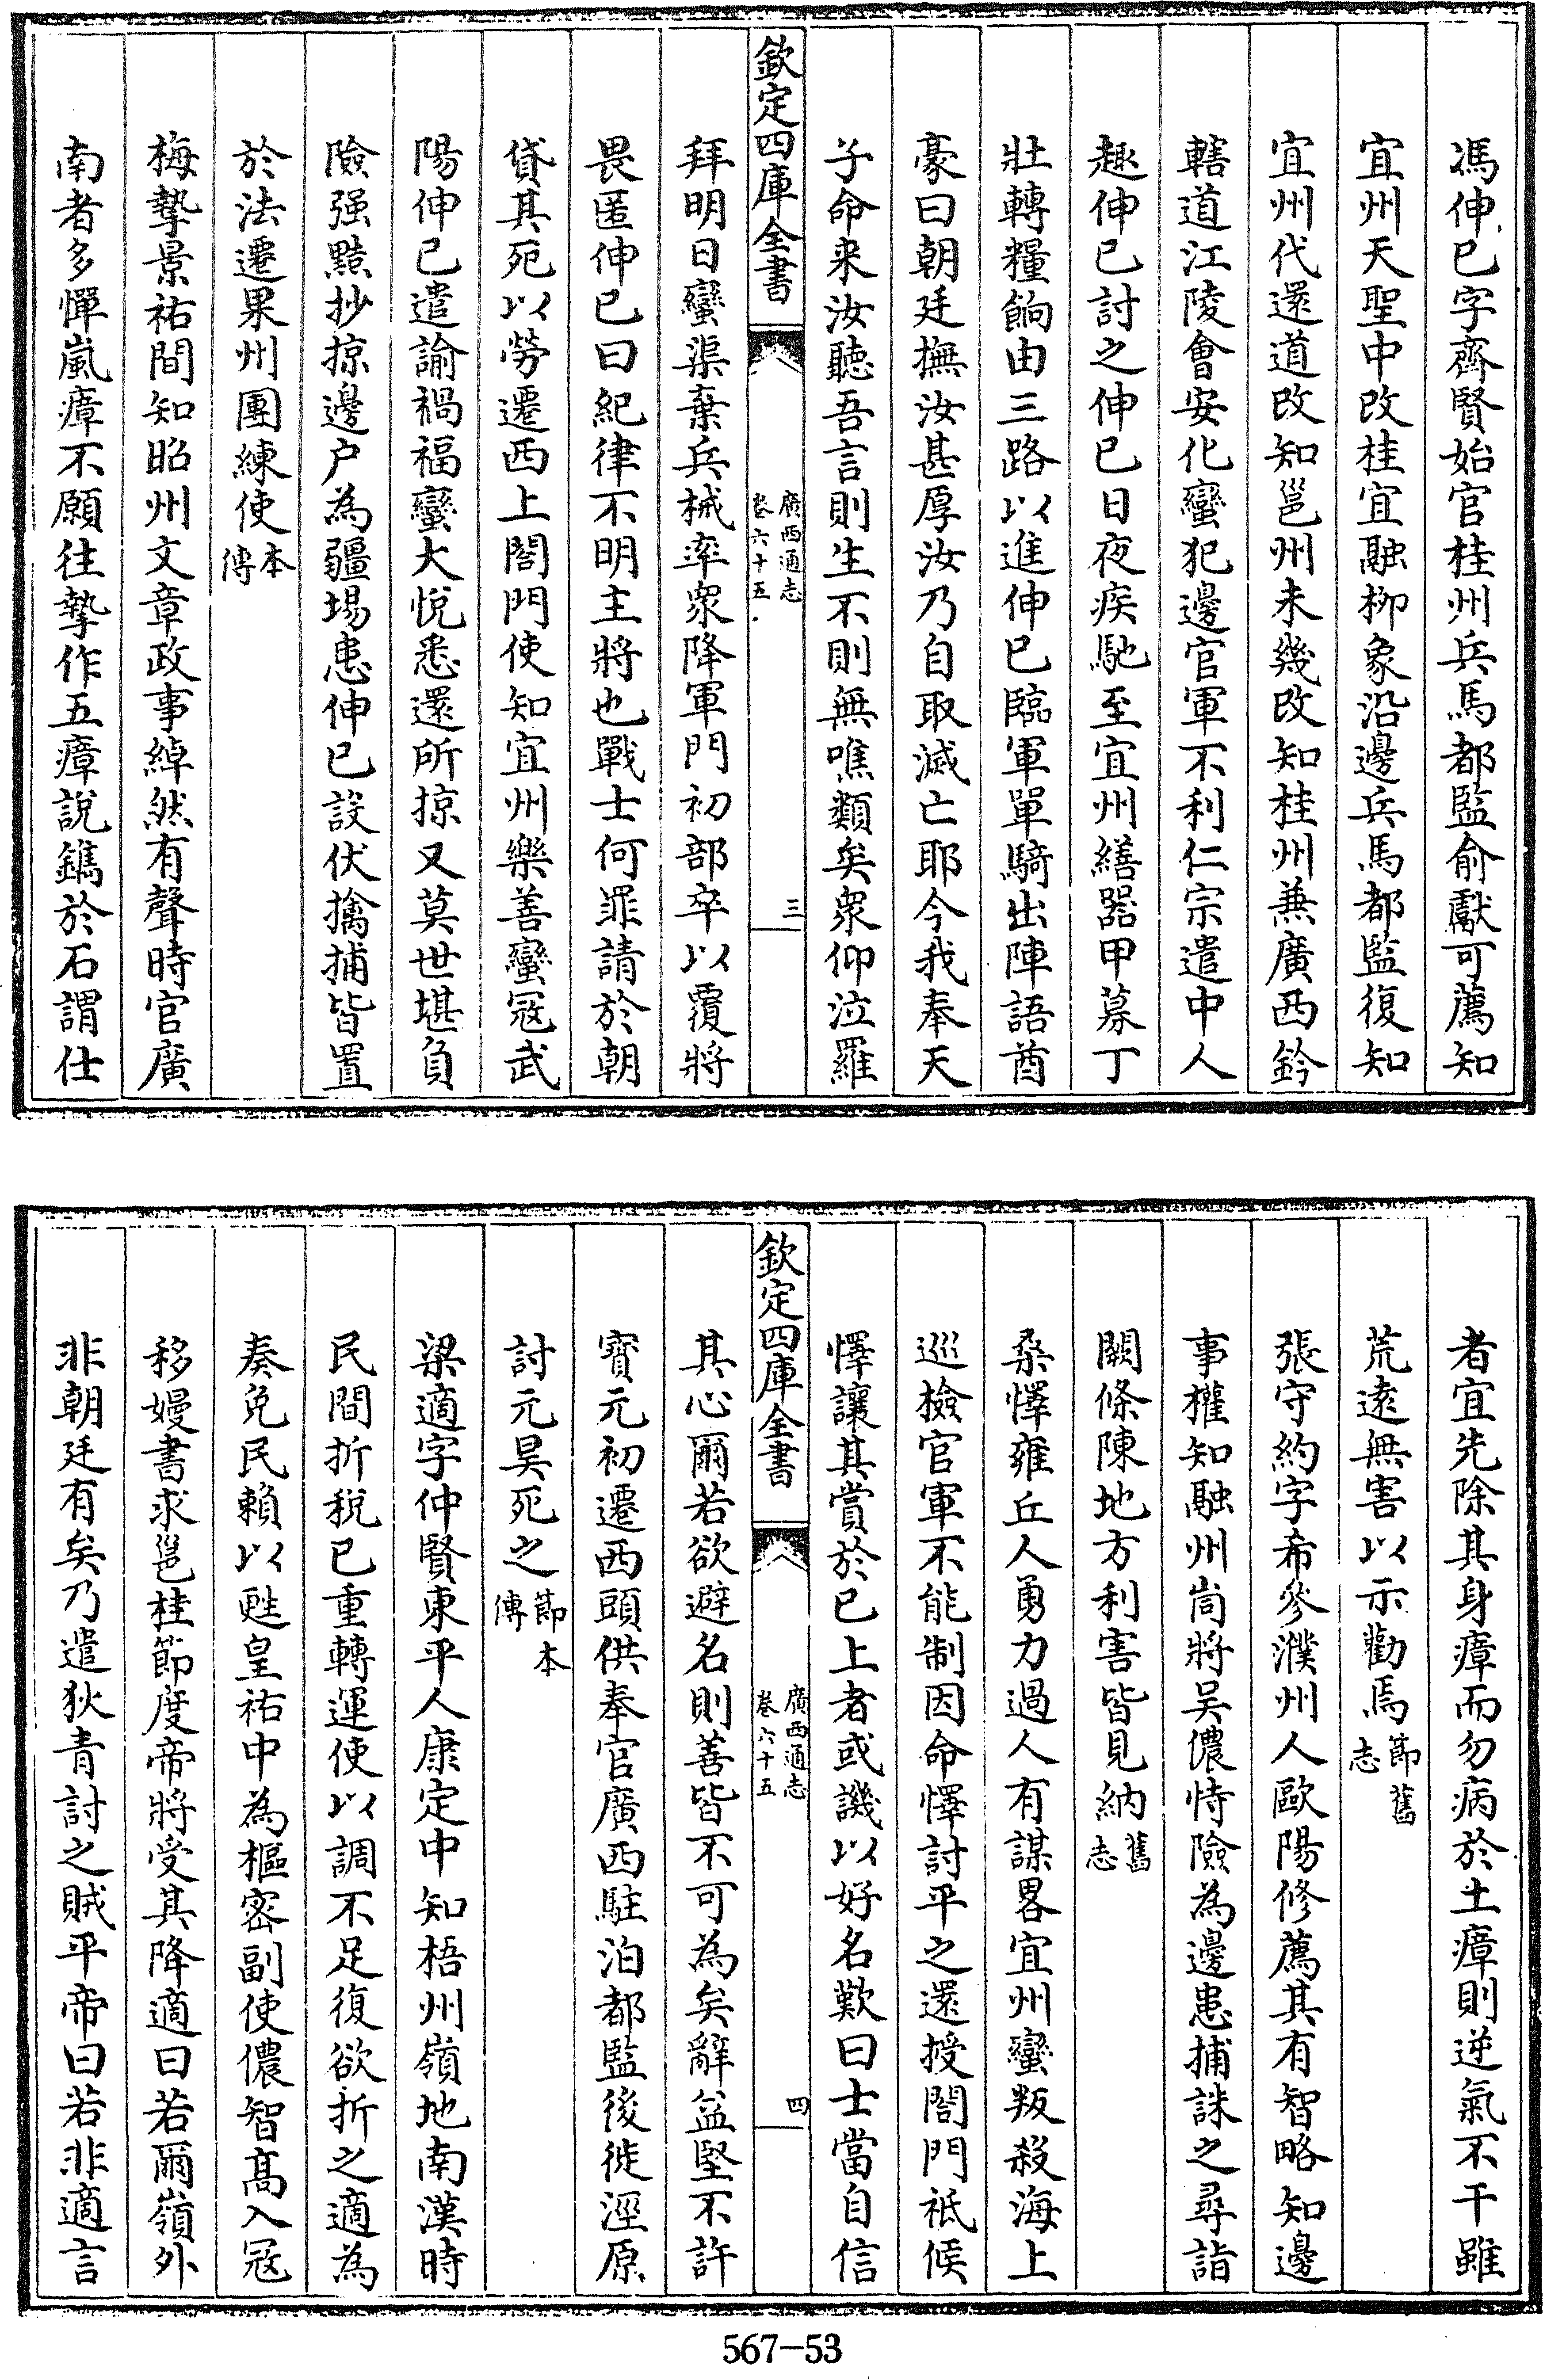 馮伸已字齊賢始官桂州兵馬都監俞獻可薦知
宜州天聖中改桂宜融柳象沿邊兵馬都監復知
宜州代還道改知邕州未幾改知桂州兼廣西鈐
轄道江陵會安化蠻犯邊官軍不利仁宗遣中人
趣伸已討之伸已日夜疾馳至宜州繕器甲募丁
壯轉糧餉由三路以進伸已臨軍單騎出陣語酋
豪曰朝廷撫汝甚厚汝乃自取滅亡耶今我奉天
子命来汝聽吾言則生不則無噍類矣衆仰泣羅
欽定四庫全書
廣西通志
卷六十五
三
拜明日蠻渠棄兵械率衆降軍門初部卒以覆將
畏匿伸已曰紀律不明主將也戰士何罪請於朝
貸其死以勞遷西上閤門使知宜州樂善蠻冦武
陽伸已遣諭禍福蠻大悅悉還所掠又莫世堪負
險强黠抄掠邊户為疆埸患伸已設伏擒捕皆置
於法遷果州團練使本傳
梅摯景祐間知昭州文章政事綽然有聲時官廣
南者多憚嵐瘴不願往摯作五瘴說鐫於石謂仕
者宜先除其身瘴而勿病於土瘴則逆氣不干雖
荒逺無害以示勸焉節舊志
張守約字希參濮州人歐陽修薦其有智略知邊
事權知融州峝將吴儂恃險為邊患捕誅之尋詣
闕條陳地方利害皆見納舊志
桑懌雍丘人勇力過人有謀畧宜州蠻叛殺海上
巡檢官軍不能制因命懌討平之還授閤門祗候
懌讓其賞於已上者或譏以好名歎曰士當自信
欽定四庫全書
廣西通志
卷六十五
四
其心爾若欲避名則善皆不可為矣辭益堅不許
寳元初遷西頭供奉官廣西駐泊都監後徙涇原
討元昊死之節本傳
梁適字仲賢東平人康定中知梧州嶺地南漢時
民間折稅已重轉運使以調不足復欲折之適為
奏免民賴以甦皇祐中為樞密副使儂智髙入冦
移嫚書求邕桂節度帝將受其降適曰若爾嶺外
非朝廷有矣乃遣狄青討之賊平帝曰若非適言
567-53